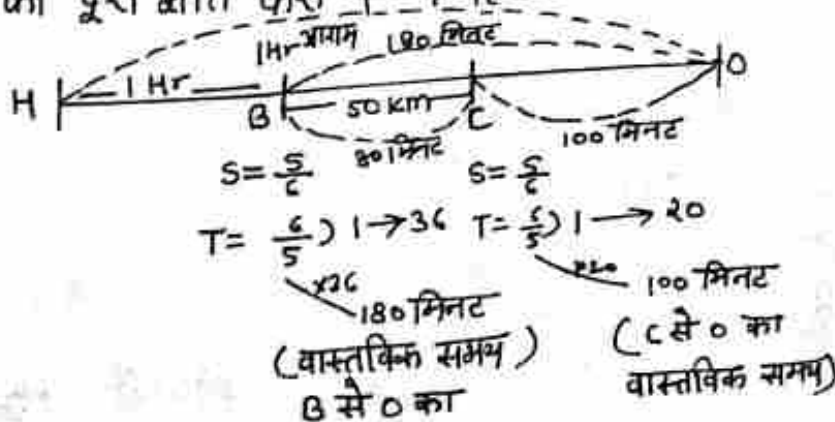 का पूरी
1Hr आराम 180 मिनट
H 1 Hr B 50 KM C O
80 मिनट 100 मिनट
S= 5/6 S= 5/6
T= 6/5 ) 1 → 36 T= 6/5 ) 1 → 20
×36 ×20
180 मिनट 100 मिनट
(वास्तविक समय) (C से O का
B से O का वास्तविक समय)